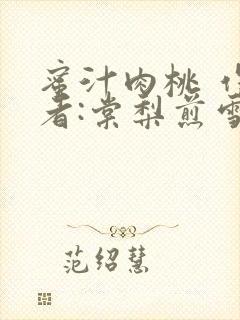 蜜汁肉桃 作
者:棠梨煎雪
范绍慧